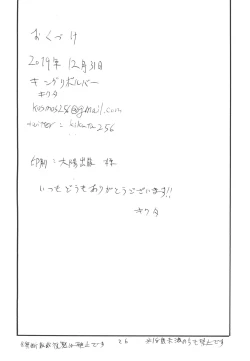 おくづけ
2019年 12月31日
キングリボルバー
キクタ
kosmos256@gmail.com
twitter: kikuta256
印刷: 太陽出版 株
いつもどうもありがとうございます!!
キクタ
※無断転載複製は禁止です
26